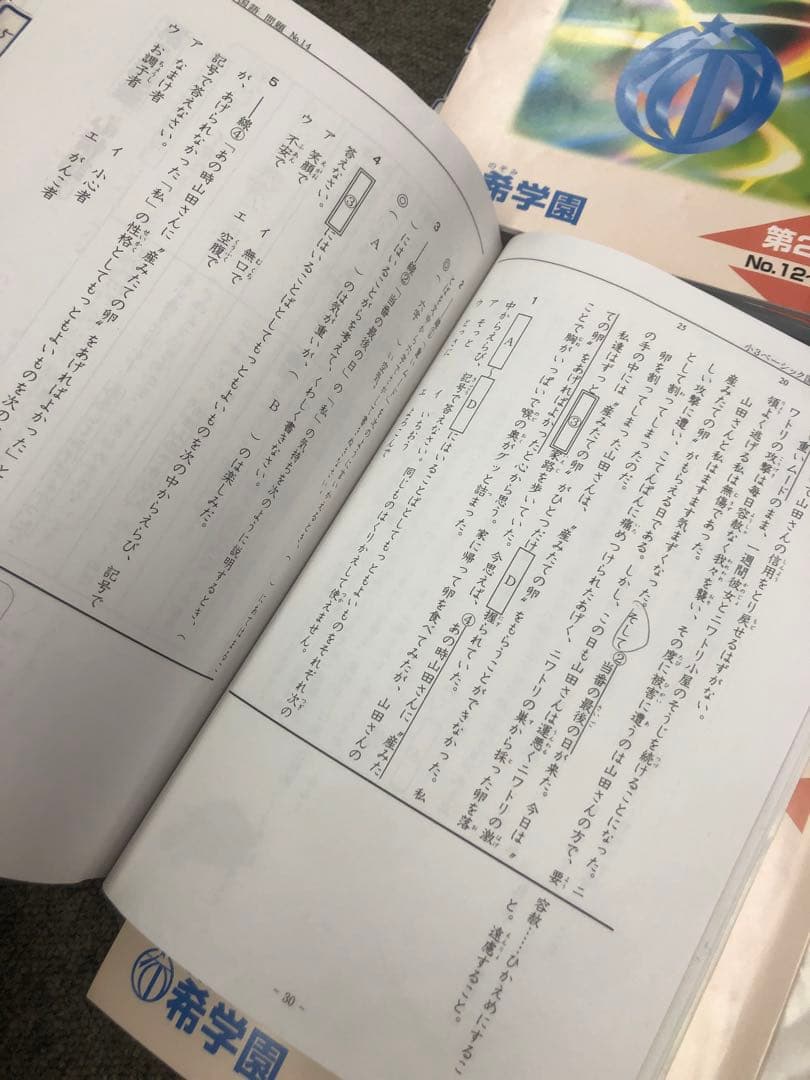 小3ベーシック国
20
重いムードのまま、
山田さんの信用をとり戻せるはずがない。
一週間彼女とニワトリ小屋のそうじを続けることになった。ニ
ワトリの攻撃は毎日容赦なく我々を襲い、その度に被害に遭うのは山田さんの方で、要
領よく逃げる私は無傷であった。
山田さんと私はますます気まずくなった。
そして②当番の最後の日が来た。今日は〝
産みたての卵〟がもらえる日である。しかし、この日も山田さんは運悪くニワトリの激
しい攻撃に遭い、こてんぱんに痛めつけられたあげく、ニワトリの巣から採った卵を落
として
卵を割ってしまったのだ。
の手の中には
25
私達はずっと
③
家路を歩いていた。
D
握られていた。
ての卵〟をあげればよかったと心から思う。今思えば、④あの時山田さんに〝産みた
ことで胸がいっぱいで喉の奥がグッと詰まった。
家に帰って卵を食べてみたが、山田さんの
1
A
D
にはいることばとしてもっともよいものをそれぞれ次の
中からえらび、記号で答えなさい。同じものはくりかえして使えません。
ア
イ いちおう
ウ そっと
エ よろこんで
容赦……ひかえめにするこ
と。遠慮すること。
- 30 -
国語 問題 No.14
3
◎
――線②「当番の最後の日」の「私」の気持ちを次のように説明するとき、(
)にはいることばを考えて、くわしく書きなさい。
( A )のは気が重いが、( B )のは楽しみだ。
4
③
にはいることばとしてもっともよいものを次の中からえらび、記号で
答えなさい。
ア 笑顔で
イ 無口で
ウ 不安で
エ 空腹で
5
――線④「あの時山田さんに〝産みたての卵〟をあげればよかった」と
が、あげられなかった「私」の性格としてもっともよいものを次の
記号で答えなさい。
ア なまけ者
イ 小心者
ウ お調子者
エ がんこ者
のぞみ
希学園
第2
No.12
希学園